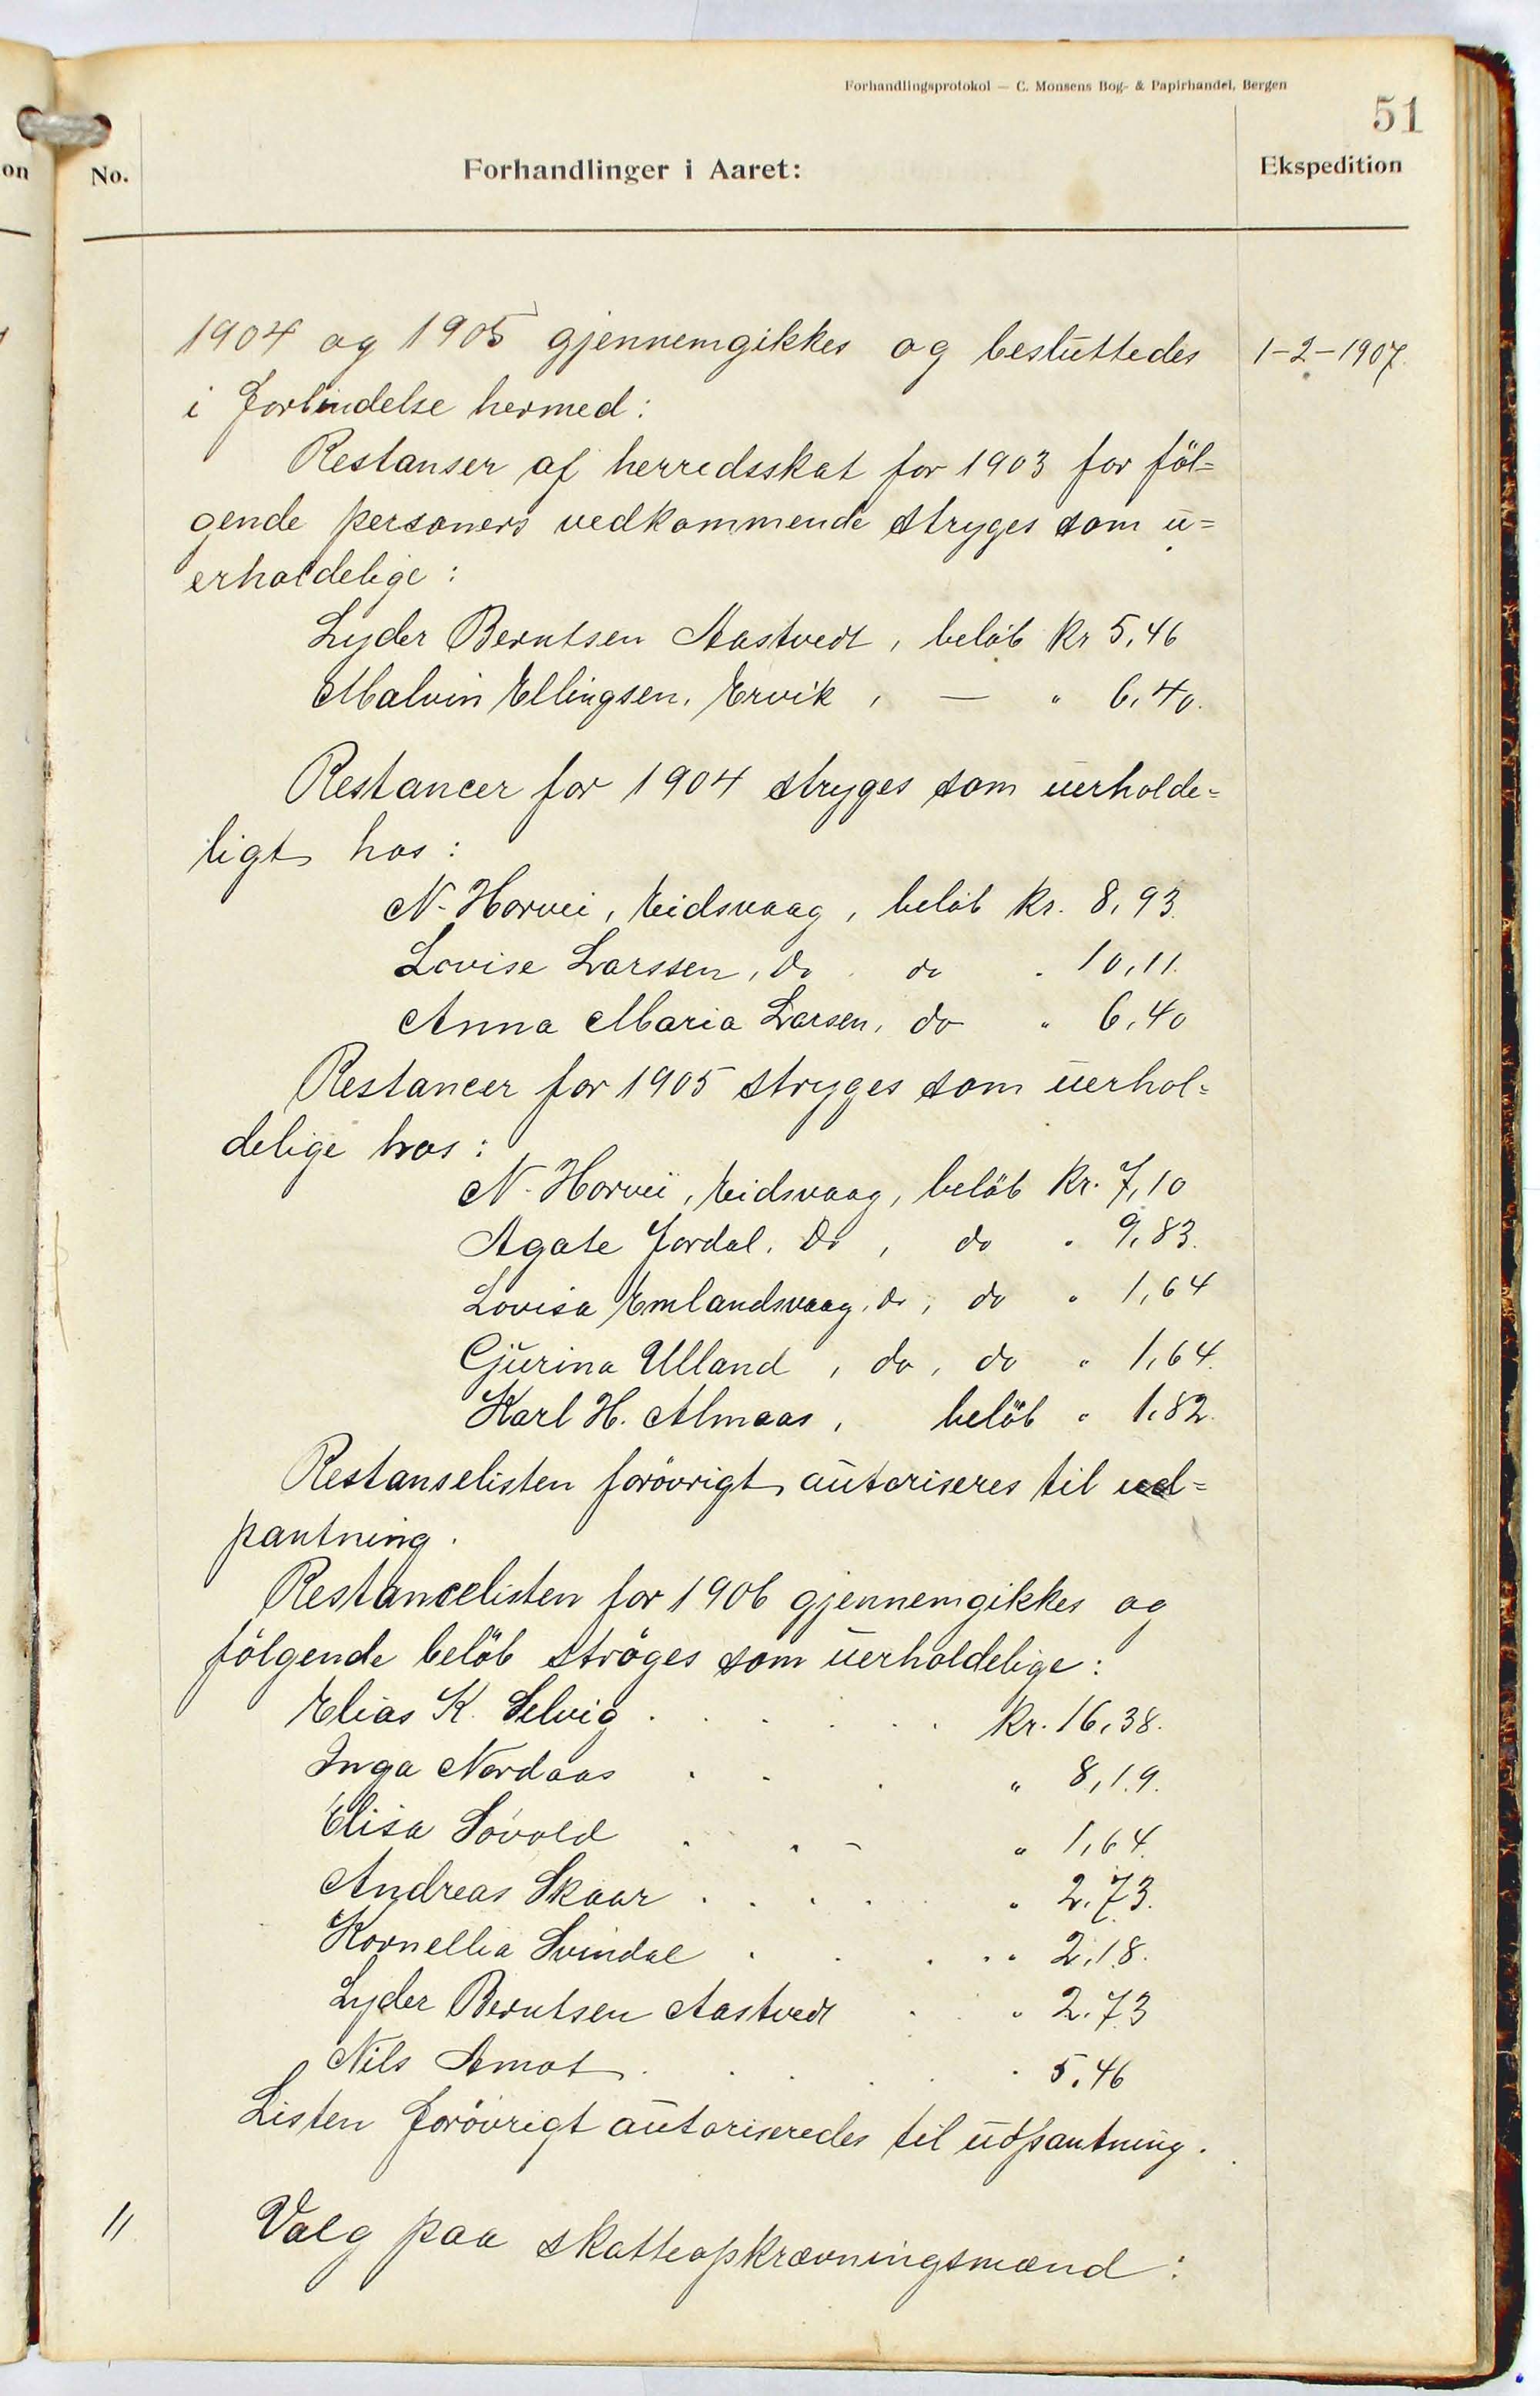 Forhandlingsprotokol — C. Monsens Bog- & Papirhandel, Bergen
51
on No. Forhandlinger i Aaret: Ekspedition
1904 og 1905 gjennemgikkes og besluttedes 1-2-1907.
i forbindelse hermed:
Restanser af herredsskat for 1903 for föl=
gende personers vedkommende stryges som u=
erholdelige:
Lyder Berntsen Aastvedt, belöb kr 5,46
Malvin Ellingsen, Ervik, — " 6,40.
Restancer for 1904 stryges som uerholde=
ligt hos:
N. Horvei, Eidsvaag, belöb kr. 8,93.
Lovise Larssen, do do " 10,11.
Anna Maria Larsen, do " 6,40
Restancer for 1905 stryges som uerhol=
delige hos:
N. Horvei, Eidsvaag, belöb kr. 7,10
Agate Jordal, do, do " 9,83.
Lovisa Emlandsvaag, do, do " 1,64
Gjurina Ulland, do, do " 1,64.
Karl H. Almaas, belöb " 1,82.
Restanselisten forövrigt autoriseres til ud=
pantning.
Restancelisten for 1906 gjennemgikkes og
fölgende belöb ströges som uerholdelige:
Elias K. Selvig . . . . . . kr. 16,38.
Inga Nordaas . . . " 8,19.
Elisa Sövold . . . " 1,64.
Andreas Skaar . . . . " 2,73.
Kornellia Svindal . . . . " 2,18.
Lyder Berntsen Aastvedt . . " 2,73
Nils Amot . . . . . . 5,46
Listen forövrigt autoriseredes til udpantning.
11 Valg paa skatteopkrævningsmænd: